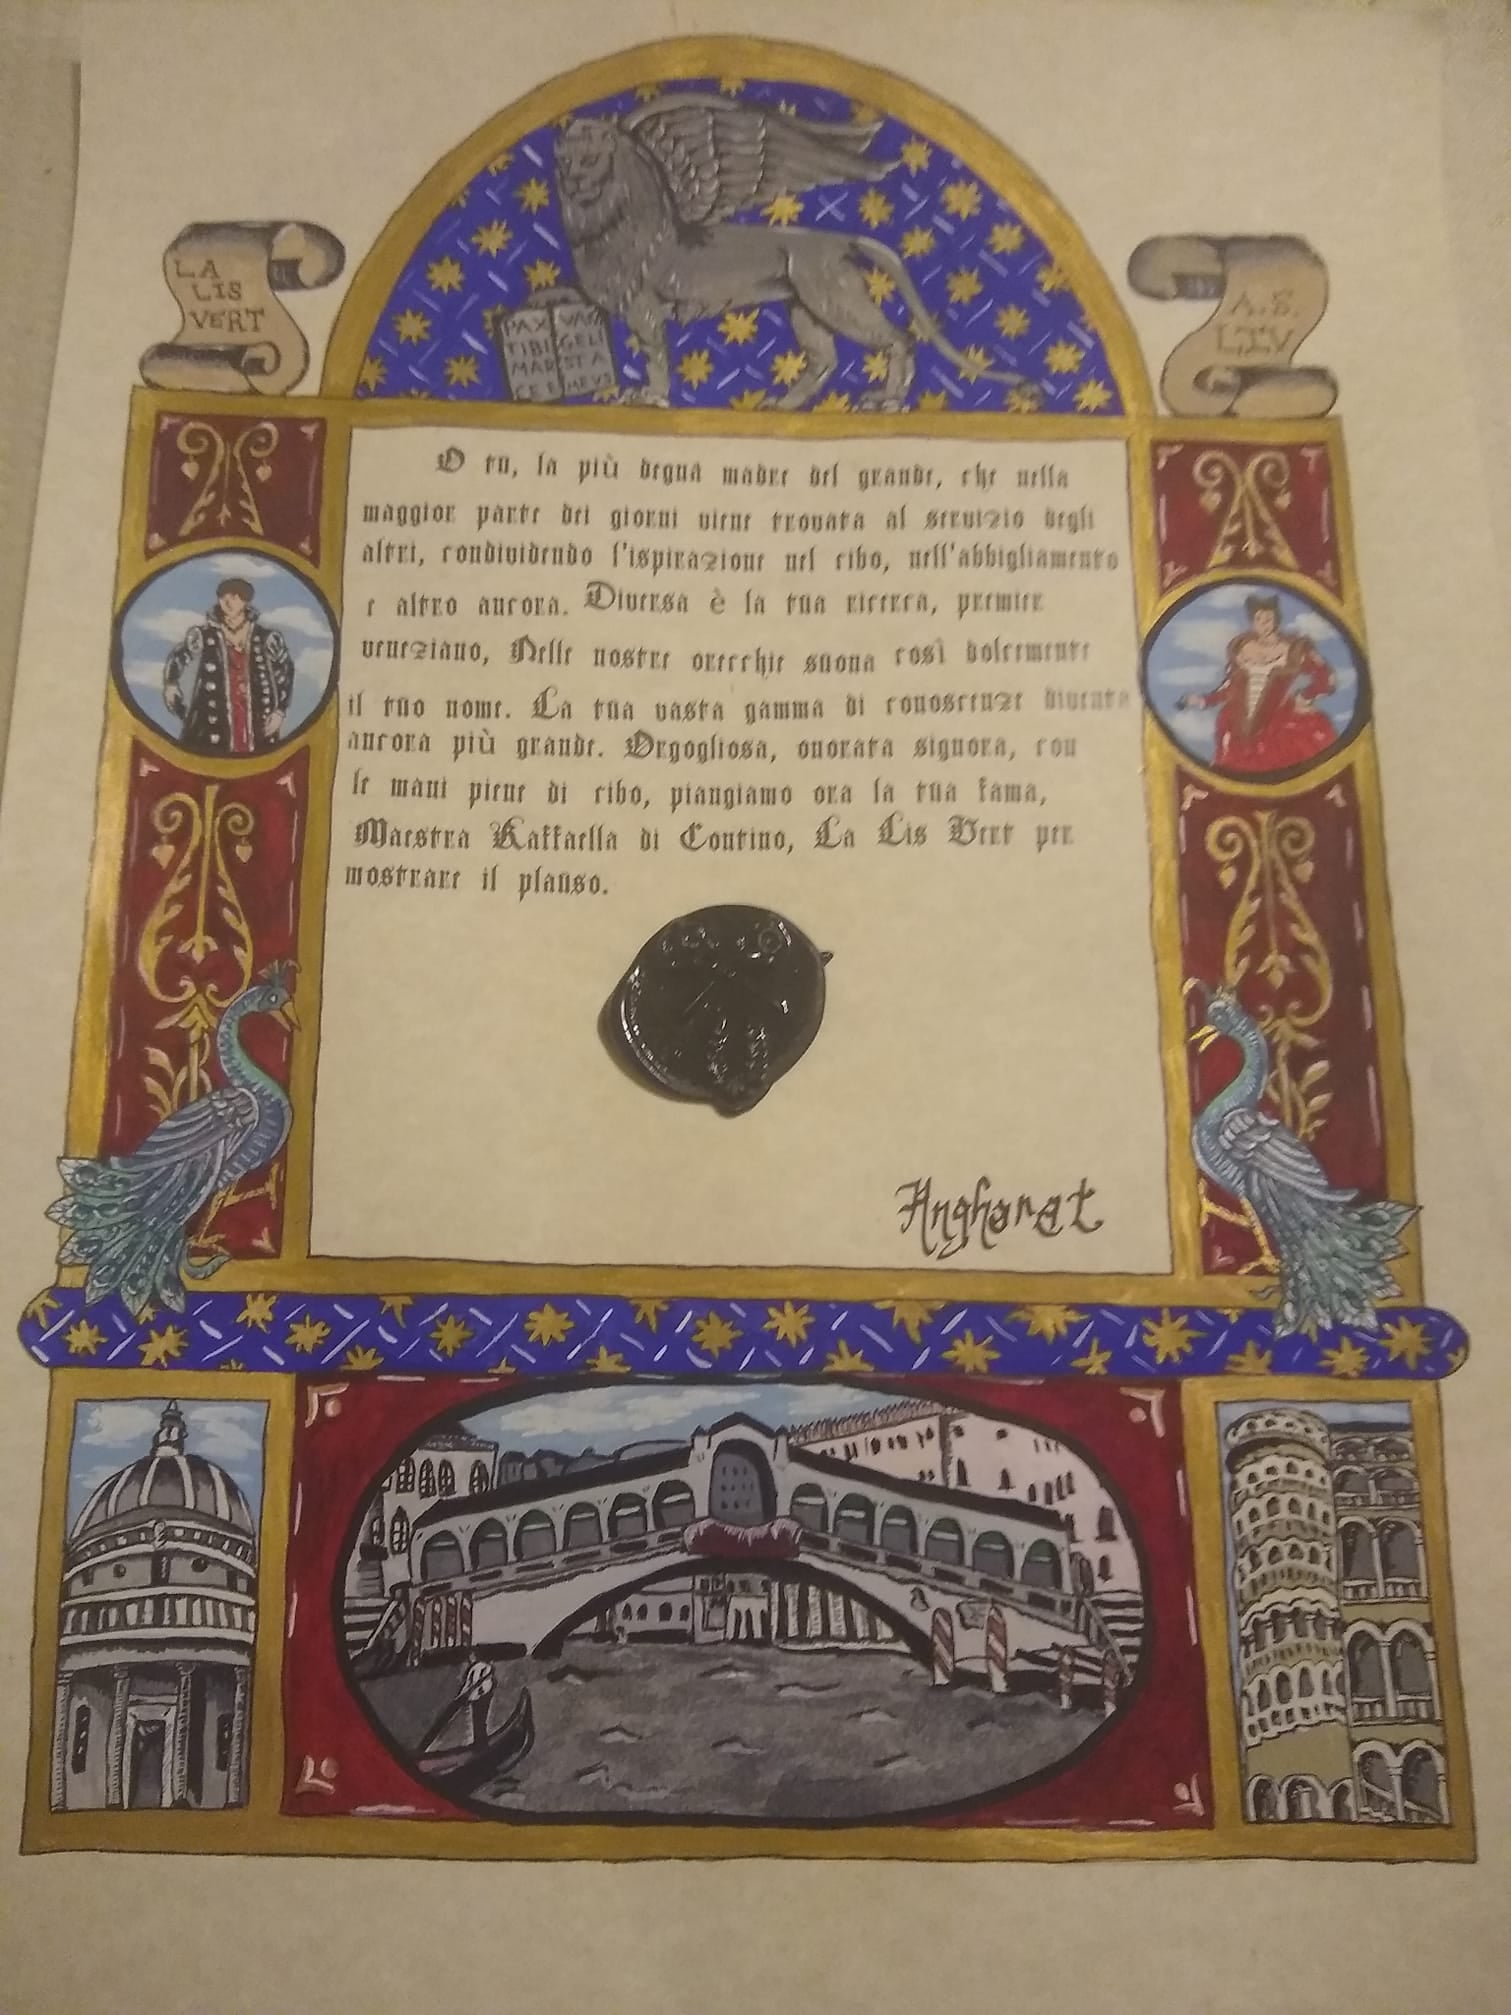 LA
LIS
VERT
A.S.
LIV
PAX
TIBI
MAR
CE E
VAN
GELI
STA
MEVS
O tu, la più degna madre del grande, che nella
maggior parte dei giorni viene trovata al servizio degli
altri, condividendo l'ispirazione nel cibo, nell'abbigliamento
e altro ancora. Diversa è la tua ricerca, premier
veneziano, Nelle nostre orecchie suona così dolcemente
il tuo nome. La tua vasta gamma di conoscenze diventa
ancora più grande. Orgogliosa, onorata signora, con
le mani piene di cibo, piangiamo ora la tua fama,
Maestra Raffaella di Contino, La Lis Vert per
mostrare il plauso.
Angharat